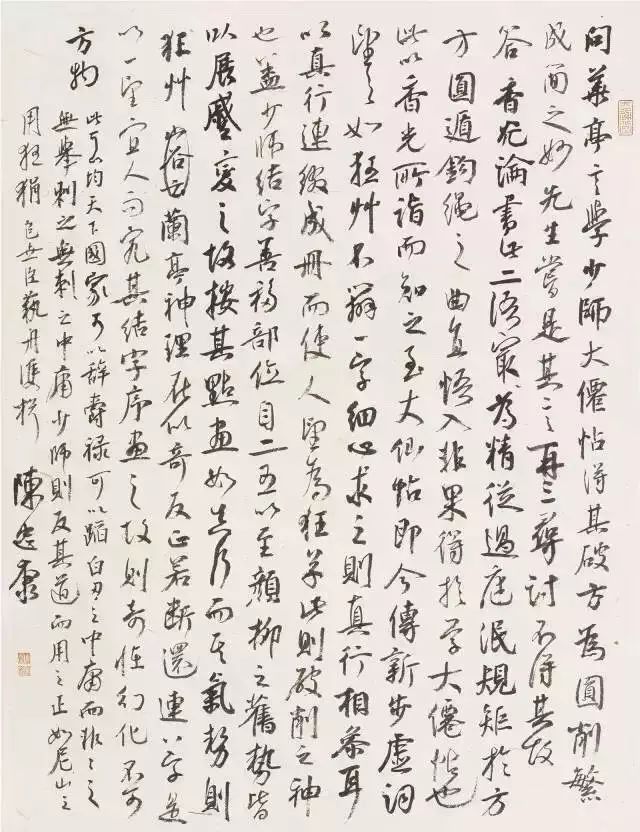 问華亭言學少師大僊帖得其破方為圓削繁
成簡之妙先生嘗是其言再三尋討不得其故
答香光論書此二語最為精從過庭泯規矩於方
方圓遁鉤繩之曲直悟入非果得於學大僊帖也
此以香光所詣而知之至大仙帖即今傳新步虛詞
望之如狂艸不辨一字細心求之則真行相參耳
以真行連綴成冊而使人望為狂草此則破削之神
也蓋少師結字善移部位自二王以至顏柳之舊勢皆
以展蹙變之故按其點畫如真行而其氣勢則
狂艸山谷云蘭亭神理在似奇反正若斷還連八字是
以一望宜人而究其結字序畫之故則奇怪幻化不可
方物
此可以均天下國家可以辭爵祿可以蹈白刃之中庸而非非之
無舉刺之無刺之中庸少師則反其道而用之正如尼山之
用狂狷 包世臣藝舟雙楫
陳忠康